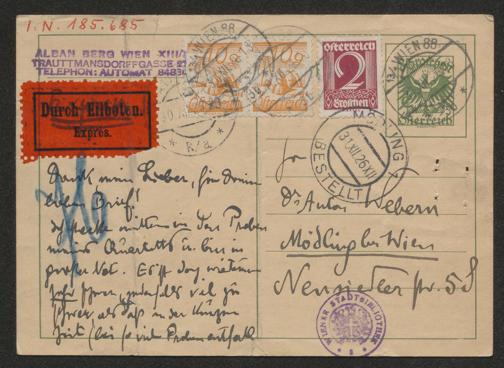 I.N. 185.685
ALBAN BERG WIEN XIII/
TRAUTTMANSDORFFGASSE 27
TELEPHON: AUTOMAT 84831
Durch Eilboten.
Exprès.
WIEN 88
60
60
Österreich
2
Groschen
WIEN 88
Österreich
MÖDLING
31.XII.26.XII
BESTELLT
* R/a *
Dank mein Lieber, für Deinen
lieben Brief!
Ich stecke mitten in den Proben
meines Quartetts u. bin in
großer Not. Es ist doch
sehr schwer, jedenfalls viel zu
schwer als daß in der kurzen
Zeit (bei so viel
An
Dr. Anton Webern
Mödling bei Wien
Neusiedlerstr. 58
WIENER STADTBIBLIOTHEK